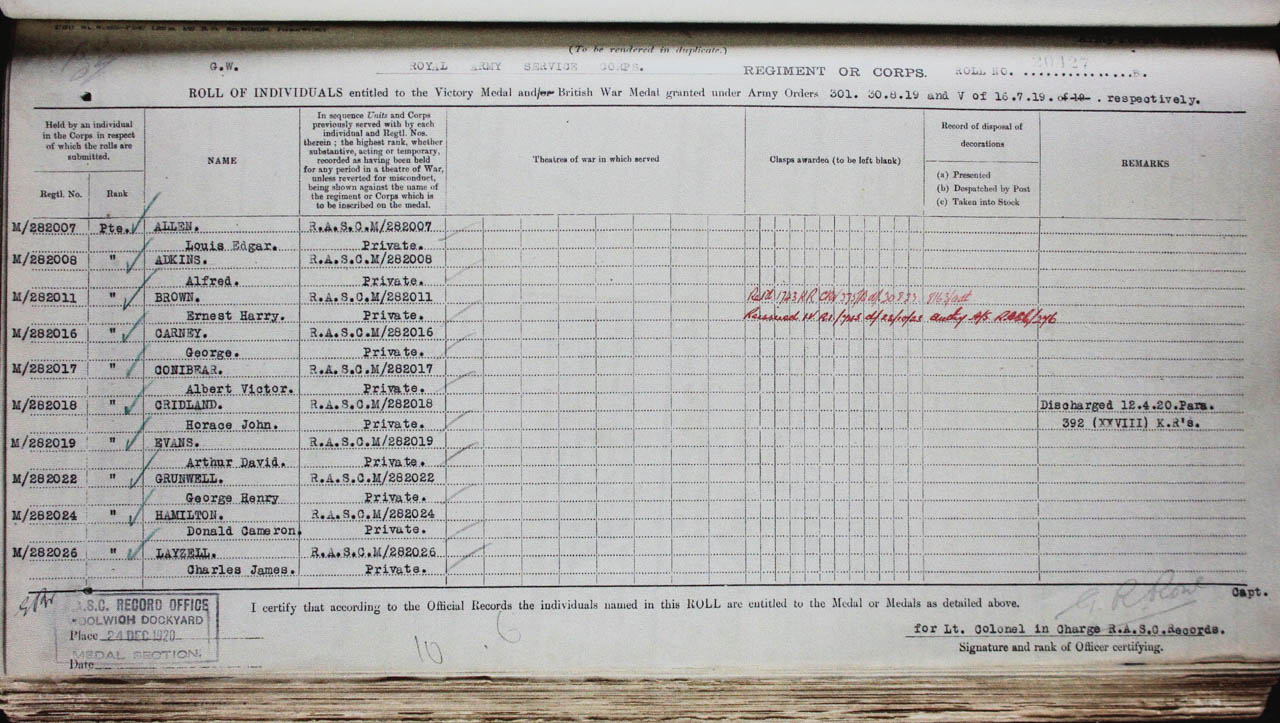 (To be rendered in duplicate.)
G.W. ROYAL ARMY SERVICE CORPS. REGIMENT OR CORPS. ROLL NO. 20427 B.
ROLL OF INDIVIDUALS entitled to the Victory Medal and/or British War Medal granted under Army Orders 301. 30.8.19 and V of 16.7.19. of 19 . respectively.
Held by an individual in the Corps in respect of which the rolls are submitted.
Regtl. No.
Rank
NAME
In sequence Units and Corps previously served with by each individual and Regtl. Nos. therein ; the highest rank, whether substantive, acting or temporary, recorded as having been held for any period in a theatre of War, unless reverted for misconduct, being shown against the name of the regiment or Corps which is to be inscribed on the medal.
Theatres of war in which served
Clasps awarded (to be left blank)
Record of disposal of decorations
(a) Presented
(b) Despatched by Post
(c) Taken into Stock
REMARKS
M/282007 Pte. ALLEN. R.A.S.C.M/282007
Louis Edgar. Private.
M/282008 " ADKINS. R.A.S.C.M/282008
Alfred. Private.
M/282011 " BROWN. R.A.S.C.M/282011
Ernest Harry. Private.
M/282016 " CARNEY. R.A.S.C.M/282016
George. Private.
M/282017 " CONIBEAR. R.A.S.C.M/282017
Albert Victor. Private.
M/282018 " CRIDLAND. R.A.S.C.M/282018 Discharged 12.4.20.Para.
Horace John. Private. 392 (XXVIII) K.R's.
M/282019 " EVANS. R.A.S.C.M/282019
Arthur David. Private.
M/282022 " GRUNWELL. R.A.S.C.M/282022
George Henry Private.
M/282024 " HAMILTON. R.A.S.C.M/282024
Donald Cameron. Private.
M/282026 " LAYZELL. R.A.S.C.M/282026
Charles James. Private.
A.S.C. RECORD OFFICE
WOOLWICH DOCKYARD
Place 24 DEC 1920
MEDAL SECTION.
Date
I certify that according to the Official Records the individuals named in this ROLL are entitled to the Medal or Medals as detailed above.
10 6
Capt.
for Lt. Colonel in Charge R.A.S.C.Records.
Signature and rank of Officer certifying.